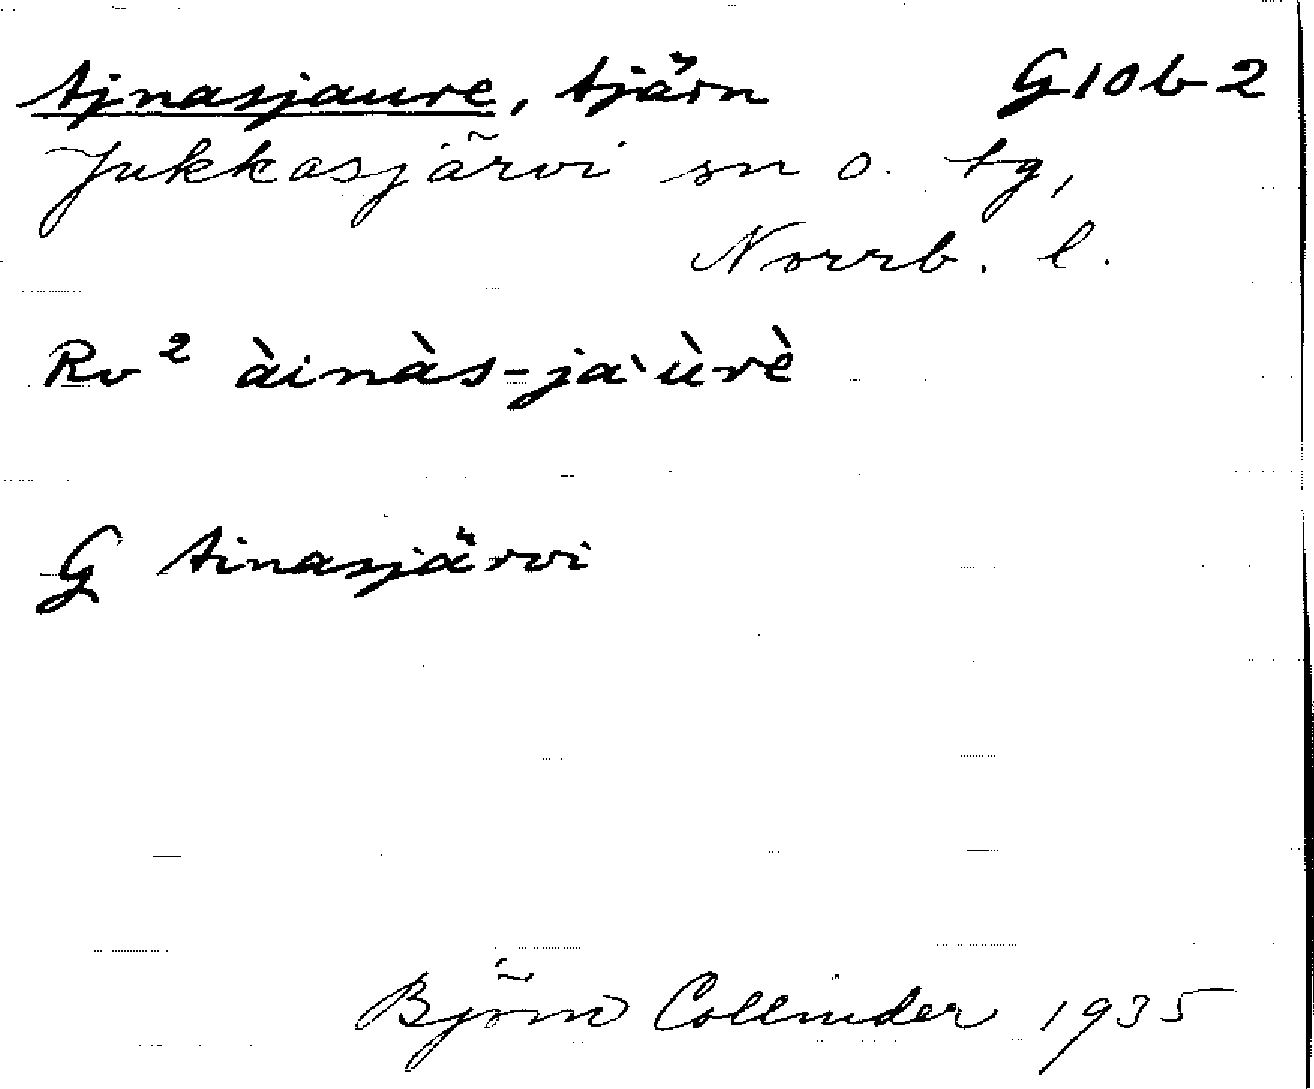 Ajnasjaure, tjärn G10b2
Jukkasjärvi sn o. tg,
Norrb. l.
Rv² àinàs-ja`ùrè
G Ainasjärvi
Björn Collinder 1935